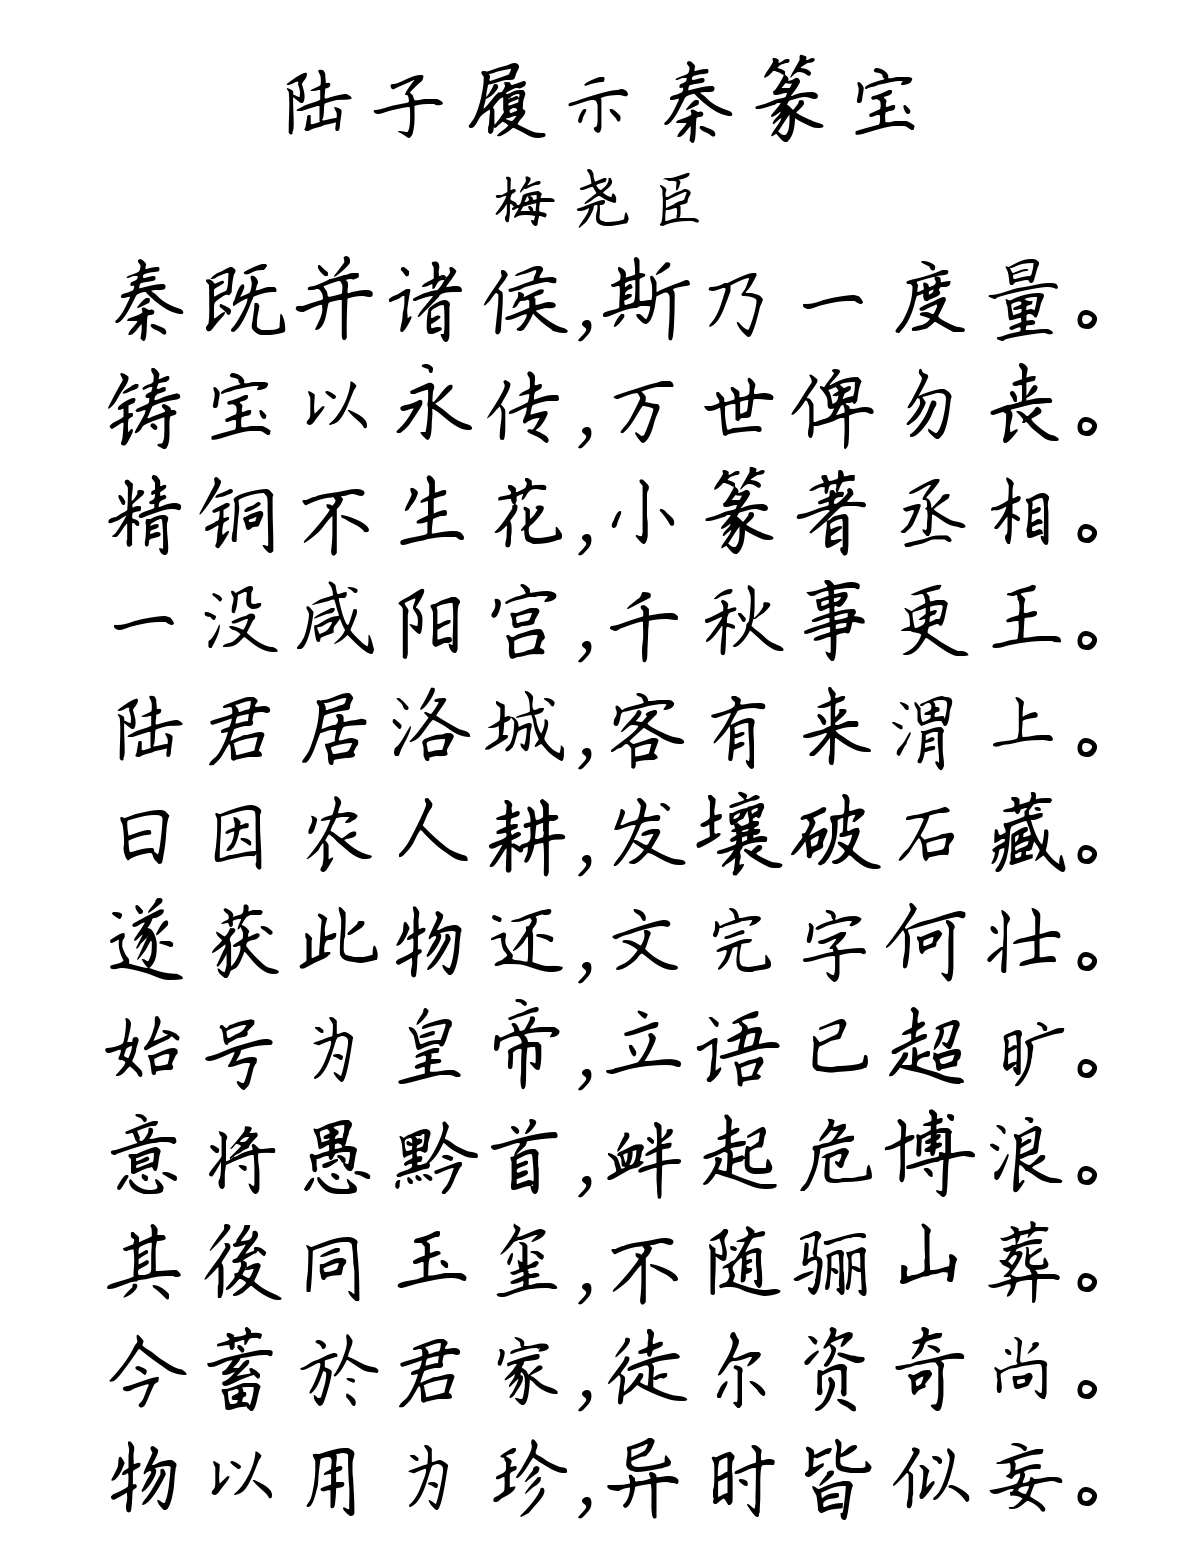 陆子履示秦篆宝
梅尧臣
秦既并诸侯,斯乃一度量。
铸宝以永传,万世俾勿丧。
精铜不生花,小篆著丞相。
一没咸阳宫,千秋事更王。
陆君居洛城,客有来渭上。
曰因农人耕,发壤破石藏。
遂获此物还,文完字何壮。
始号为皇帝,立语已超旷。
意将愚黔首,衅起危博浪。
其後同玉玺,不随骊山葬。
今蓄於君家,徒尔资奇尚。
物以用为珍,异时皆似妄。